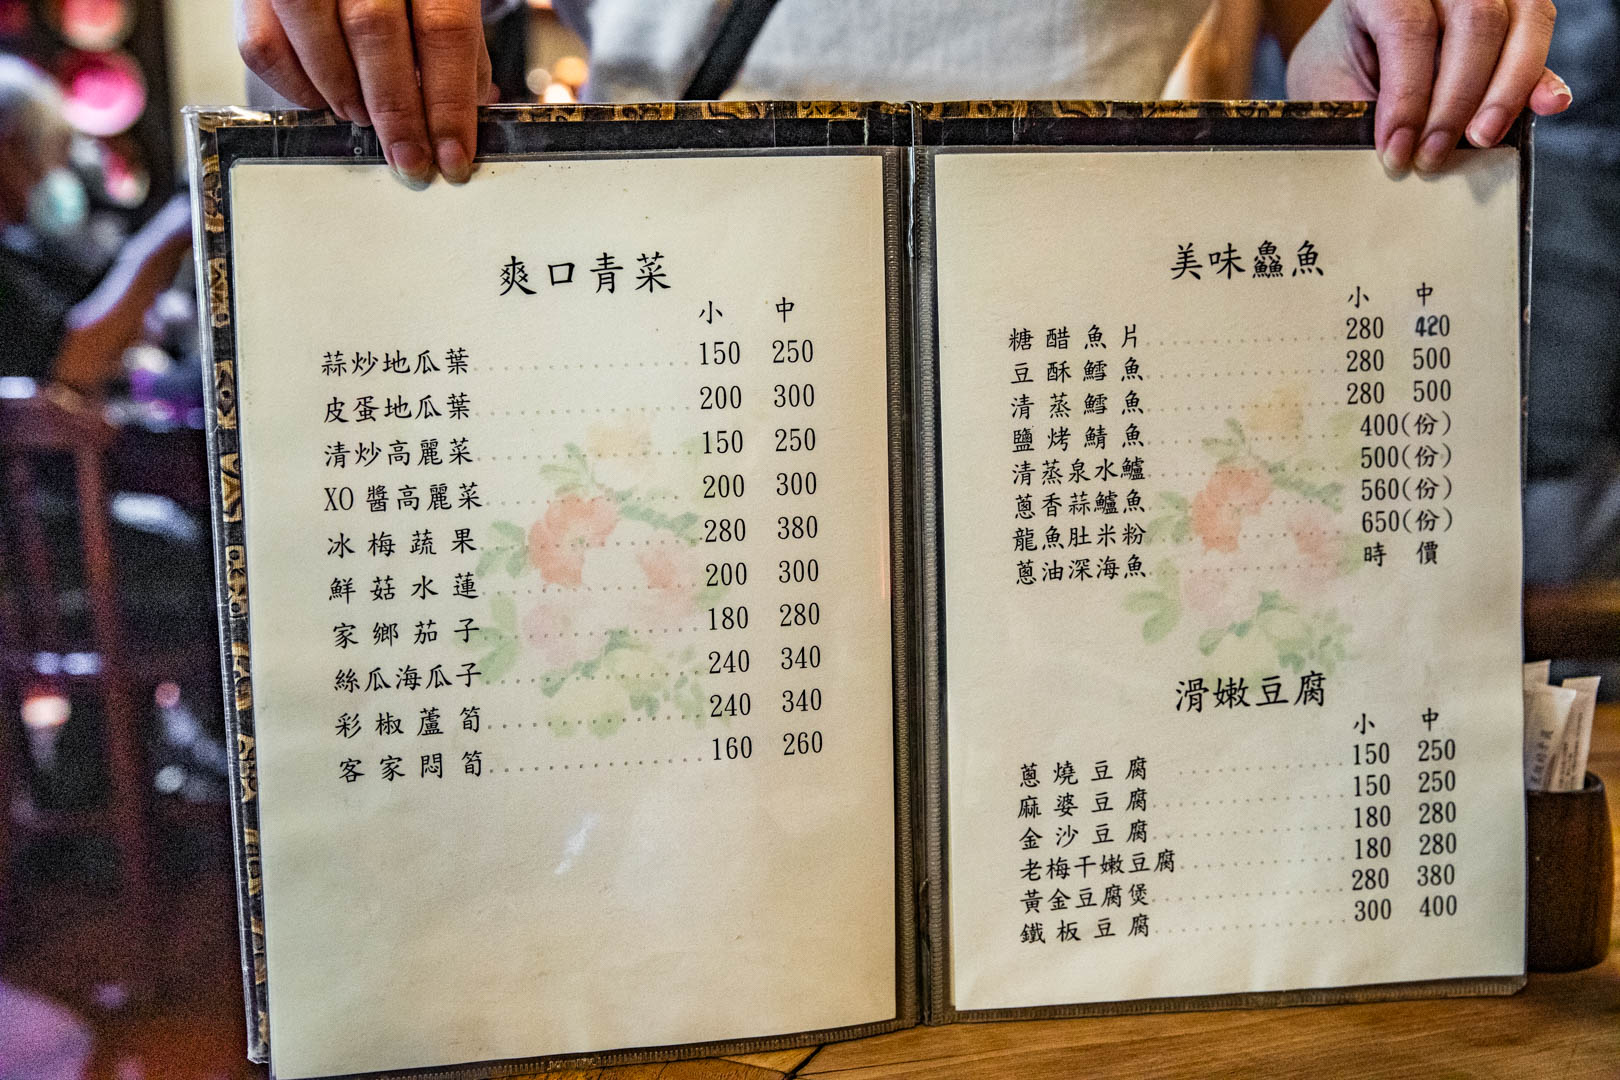 爽口青菜
小 中
蒜炒地瓜葉 150 250
皮蛋地瓜葉 200 300
清炒高麗菜 150 250
XO醬高麗菜 200 300
冰梅蔬果 280 380
鮮菇水蓮 200 300
家鄉茄子 180 280
絲瓜海瓜子 240 340
彩椒蘆筍 240 340
客家悶筍 160 260
美味鱻魚
小 中
糖醋魚片 280 420
豆酥鱈魚 280 500
清蒸鱈魚 280 500
鹽烤鯖魚 400(份)
清蒸泉水鱸 500(份)
蔥香蒜鱸魚 560(份)
龍魚肚米粉 650(份)
蔥油深海魚 時價
滑嫩豆腐
小 中
蔥燒豆腐 150 250
麻婆豆腐 150 250
金沙豆腐 180 280
老梅干嫩豆腐 180 280
黃金豆腐煲 280 380
鐵板豆腐 300 400